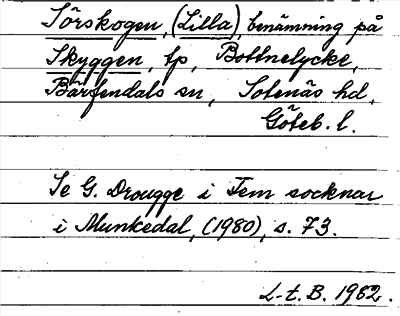 Sörskogen, (Lilla) benämning på
Skyggen, tp, Bottnelycke,
Bärfendals sn, Sotenäs hd,
Göteb. l.
Se G. Drougge i Fem socknar
i Munkedal, (1980), s. 73.
L-t. B. 1982.